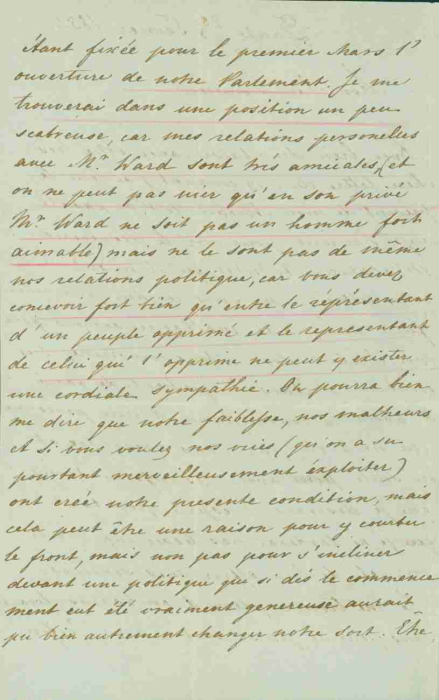 étant fixée pour le premier Mars l'
ouverture de notre Parlement. Je me
trouverai dans une position un peu
scabreuse, car mes relations personelles
avec Mr Ward sont très amicales, (et
on ne peut pas nier qu'en son privé
Mr Ward ne soit pas un homme fort
aimable) mais ne le sont pas de même
nos relations politique, car vous devez
concevoir fort bien qu'entre le répréséntant
d'un peuple opprimé et le representant
de celui qui l'opprime ne peut y exister
une cordiale sympathie. On pourra bien
me dire que notre faiblesse, nos malheurs
et si vous voulez nos (qu'on a su
pourtant merveilleusement éxploiter)
ont creé notre presente condition, mais
cela peut être une raison pour y courber
le front, mais non pas pour s'incliner
devant une politique qui si dés le commence
ment eut été vraiment genereuse aurait
pu bien autrement changer notre sort. Etre